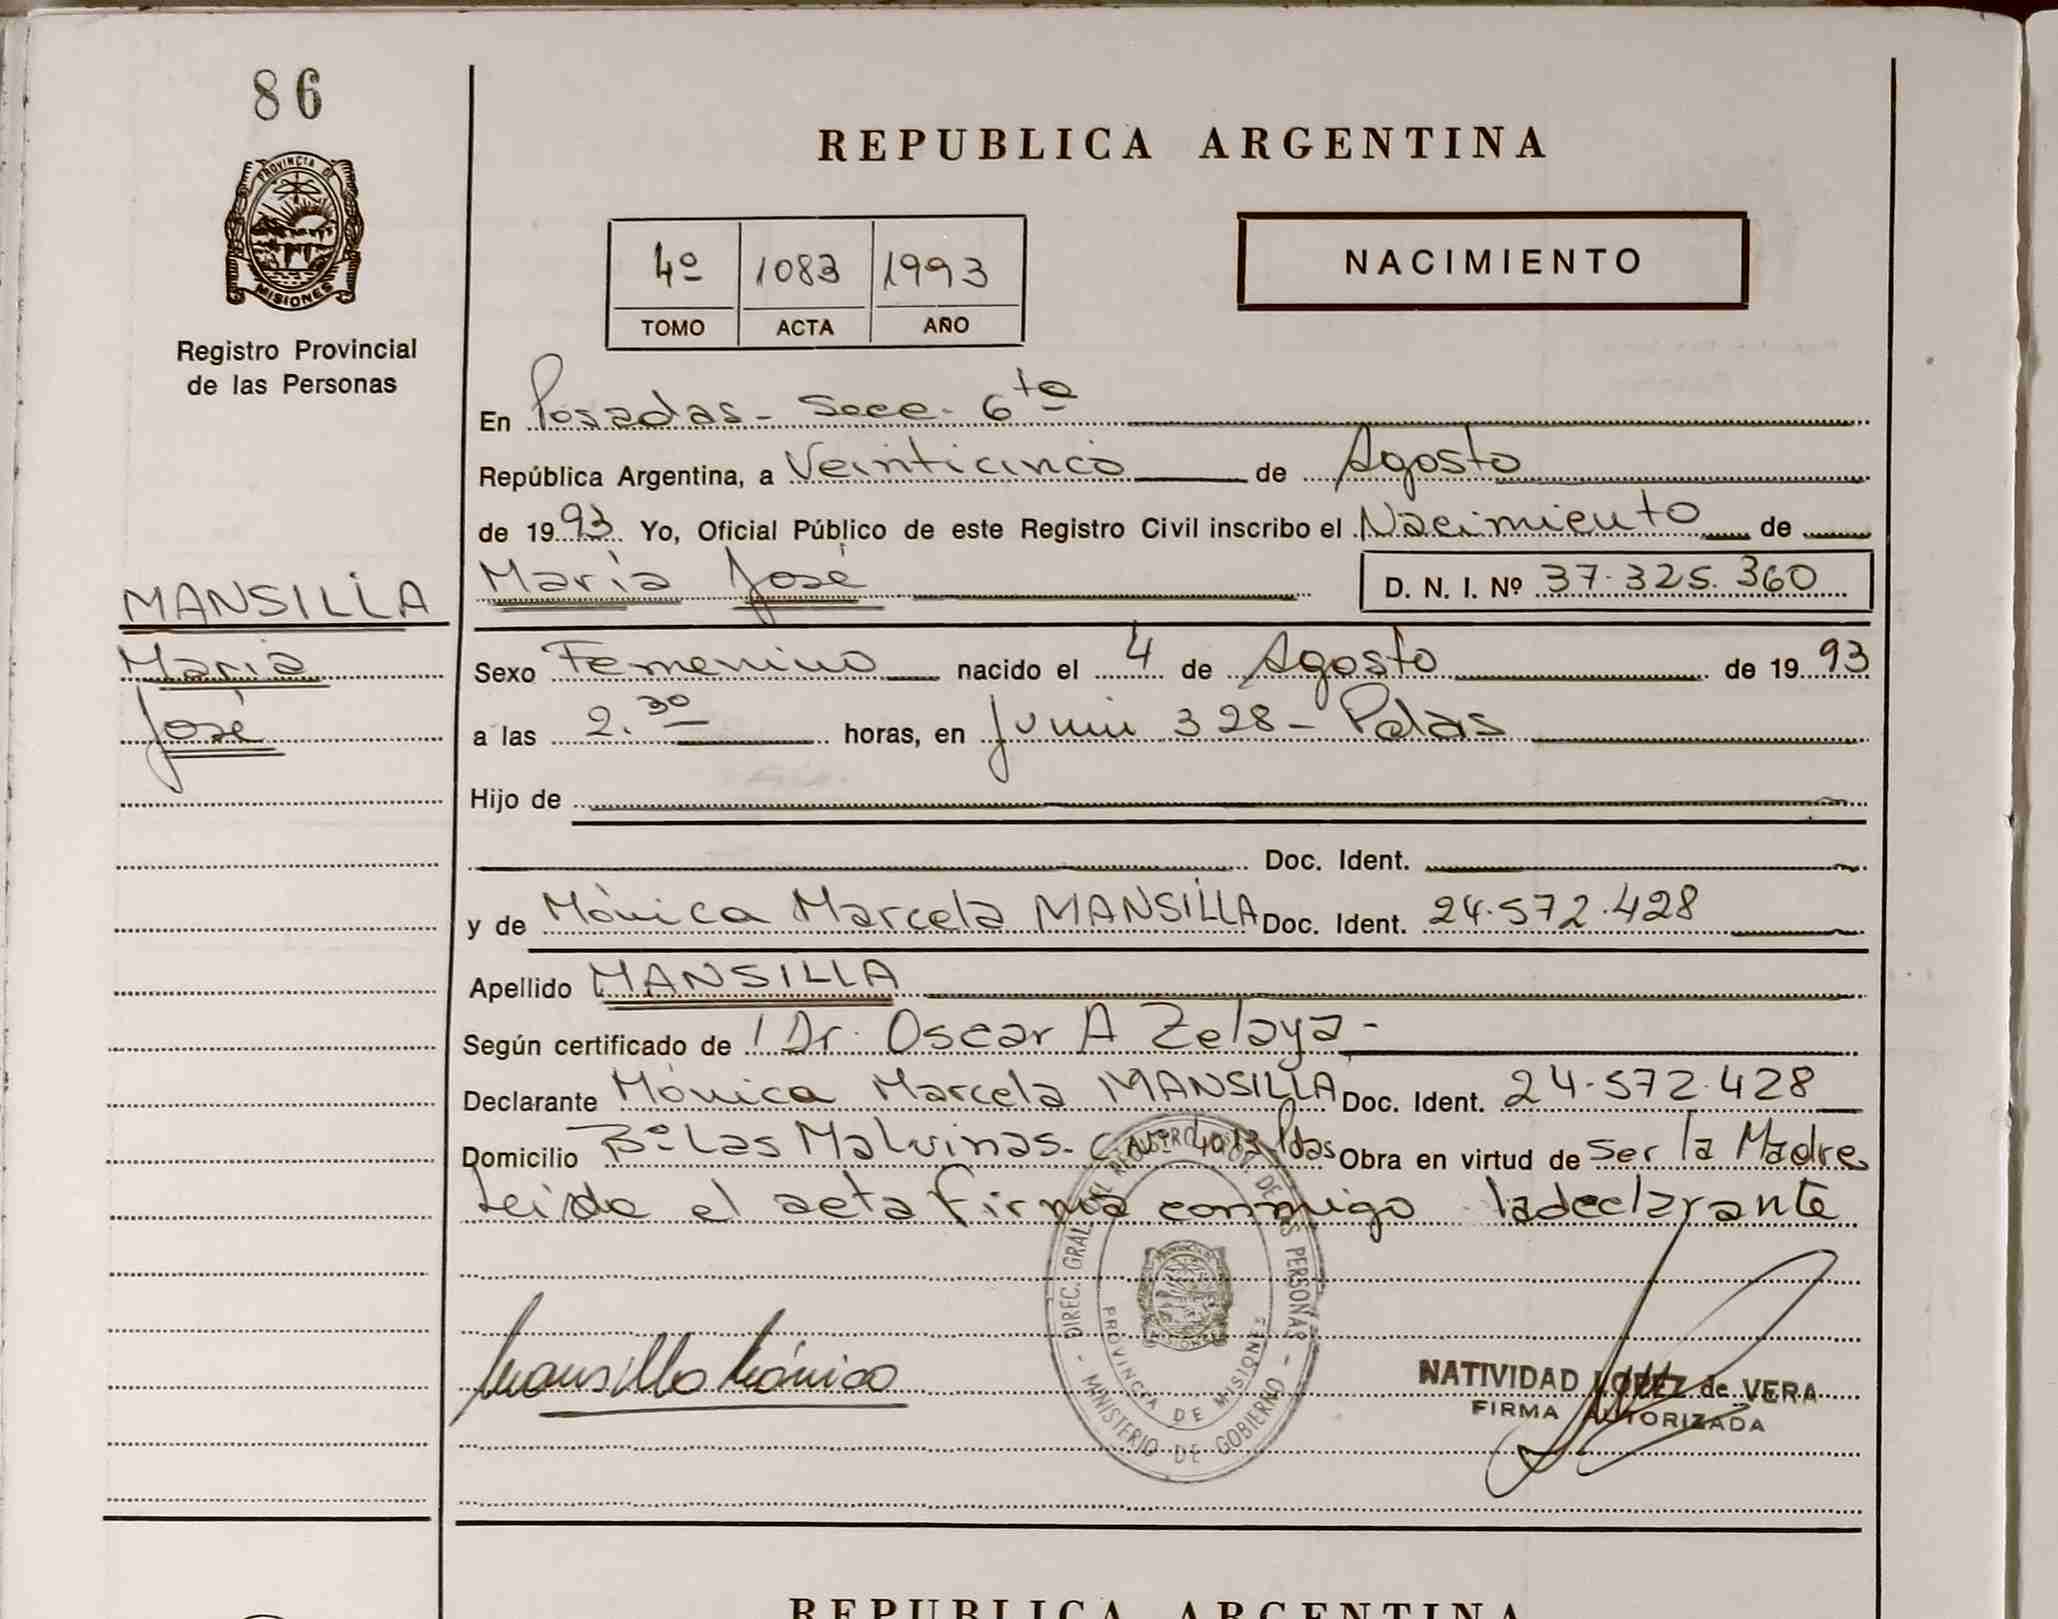 86
PROVINCIA DE
MISIONES
Registro Provincial
de las Personas
REPUBLICA ARGENTINA
4º 1083 1993
TOMO ACTA AÑO
NACIMIENTO
En Posadas - Secc. 6ta
República Argentina, a Veinticinco de Agosto
de 1993 Yo, Oficial Público de este Registro Civil inscribo el Nacimiento de
María José D. N. I. Nº 37.325.360
MANSILLA
María
José
Sexo Femenino nacido el 4 de Agosto de 1993
a las 2.30 horas, en Junin 328 - Pdas
Hijo de
Doc. Ident.
y de Mónica Marcela MANSILLA Doc. Ident. 24.572.428
Apellido MANSILLA
Según certificado de Dr. Oscar A Zelaya -
Declarante Mónica Marcela MANSILLA Doc. Ident. 24.572.428
Domicilio Bº Las Malvinas - Nº 4013 Pdas Obra en virtud de ser la Madre
Leida el acta firma conmigo la declarante
DIREC. GRAL. DEL REGISTRO PROV. DE LAS PERSONAS
PROVINCIA DE MISIONES
- MINISTERIO DE GOBIERNO -
Mansilla Mónica
NATIVIDAD LOPEZ de VERA
FIRMA AUTORIZADA
REPUBLICA ARGENTINA